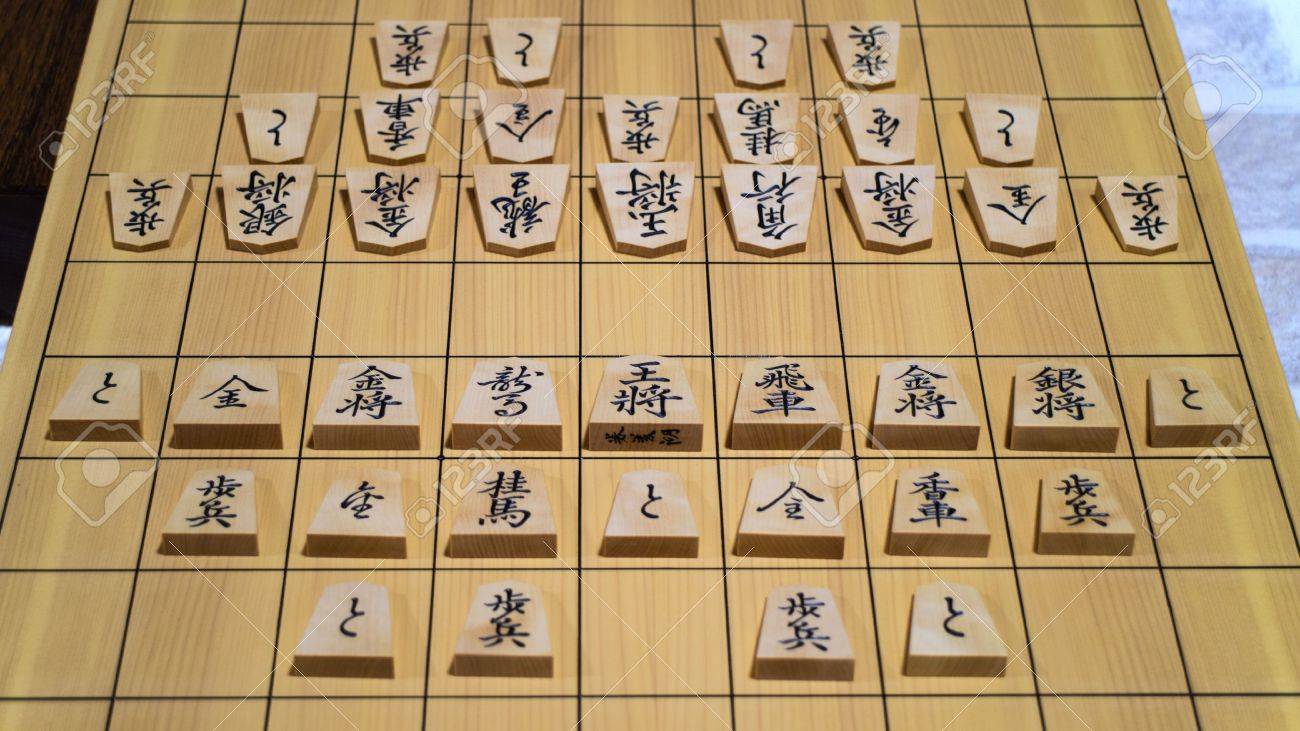 歩兵 と と 歩兵
と 香車 全 歩兵 桂馬 と
歩兵 銀将 金将 龍王 玉将 角行 金将 全 歩兵
と 金 金将 龍馬 王将 飛車 金将 銀将 と
歩兵 桂馬 と 全 香車 歩兵
と 歩兵 歩兵 と
123RF